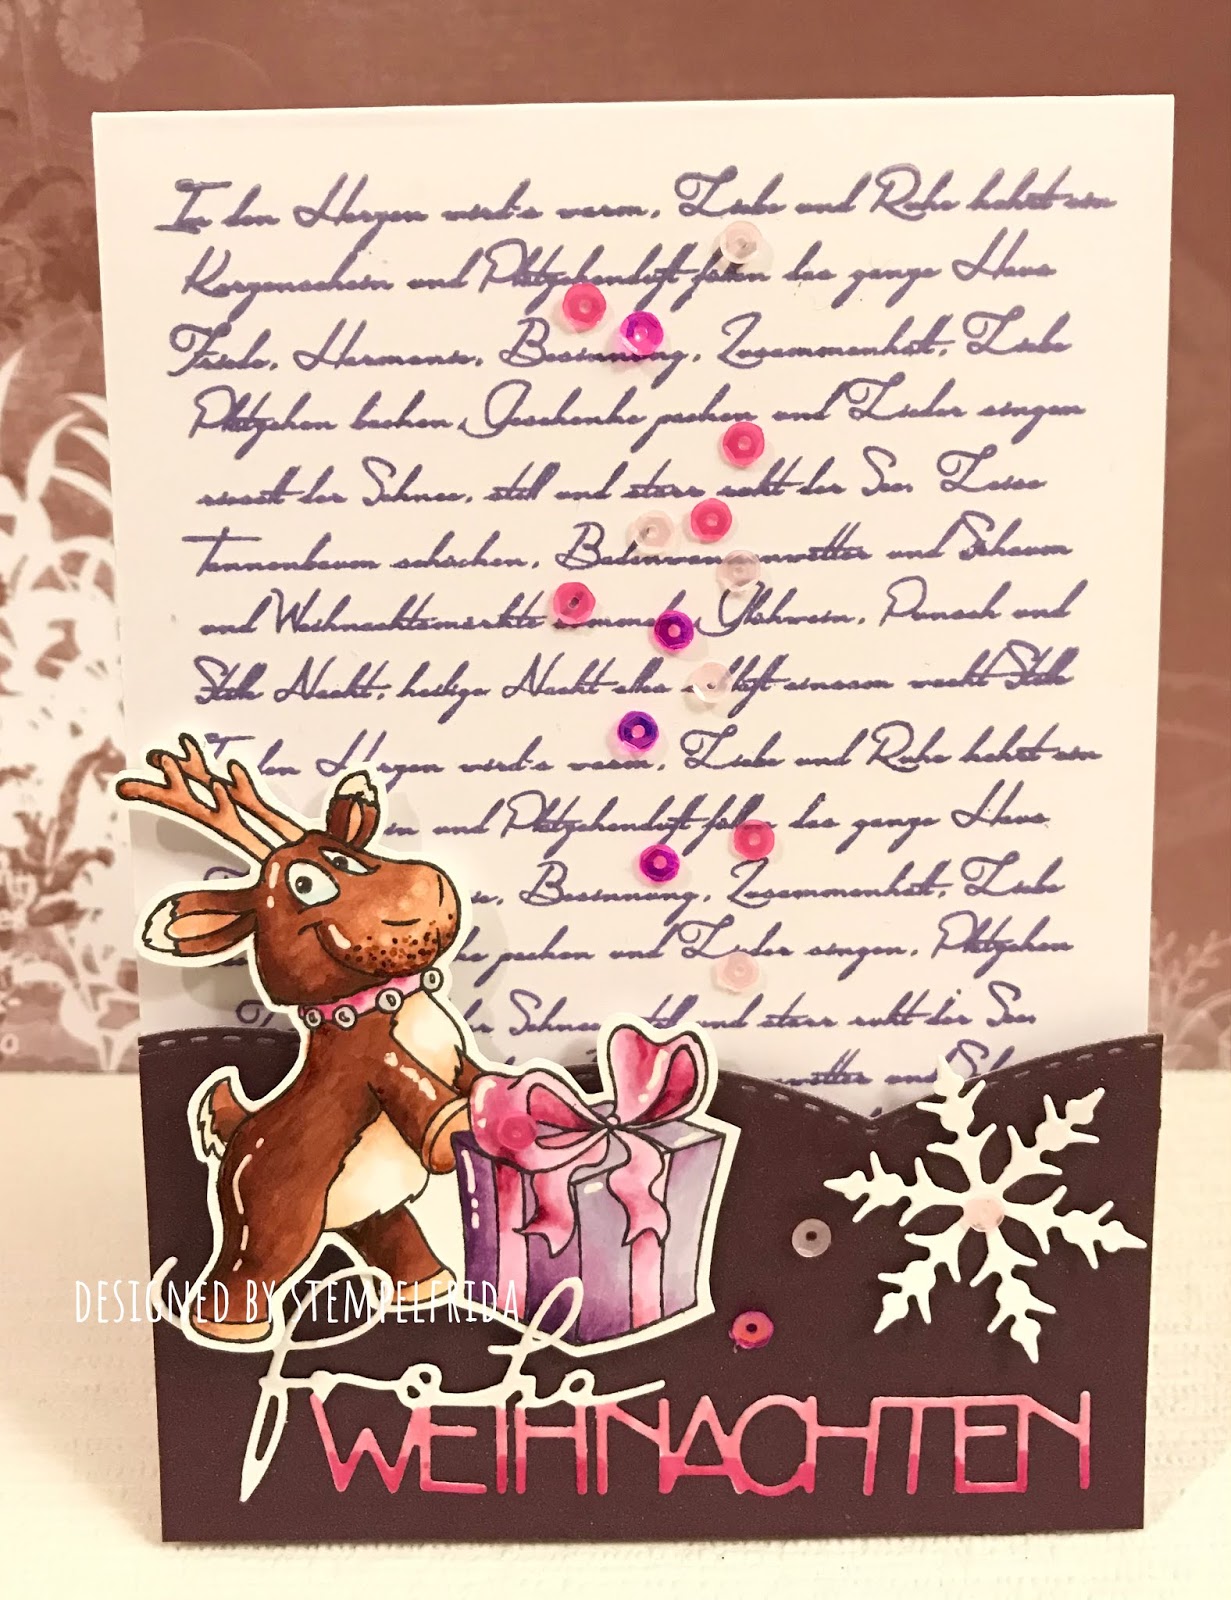 In den Herzen wird's warm, Liebe und Ruhe kehrt ein
Kerzenschein und Plätzchenduft füllen das ganze Haus
Friede, Harmonie, Besinnung, Zusammenhalt, Liebe
Plätzchen backen, Geschenke packen und Lieder singen
rieselt der Schnee, still und starr ruht der See. Leise
Tannenbaum schücken, und Schaum
und Weihnachtsmärkte Glühwein, Punsch und
Stille Nacht, heilige Nacht alles schläft einsam wacht Stille
In den Herzen wird's warm, Liebe und Ruhe kehrt ein
ein und Plätzchenduft füllen das ganze Haus
ie, Besinnung, Zusammenhalt, Liebe
ke packen und Lieder singen, Plätzchen
er Schnee, still und starr ruht der See.
wetter und Sch
DESIGNED BY STEMPELFRIDA
frohe
WEIHNACHTEN